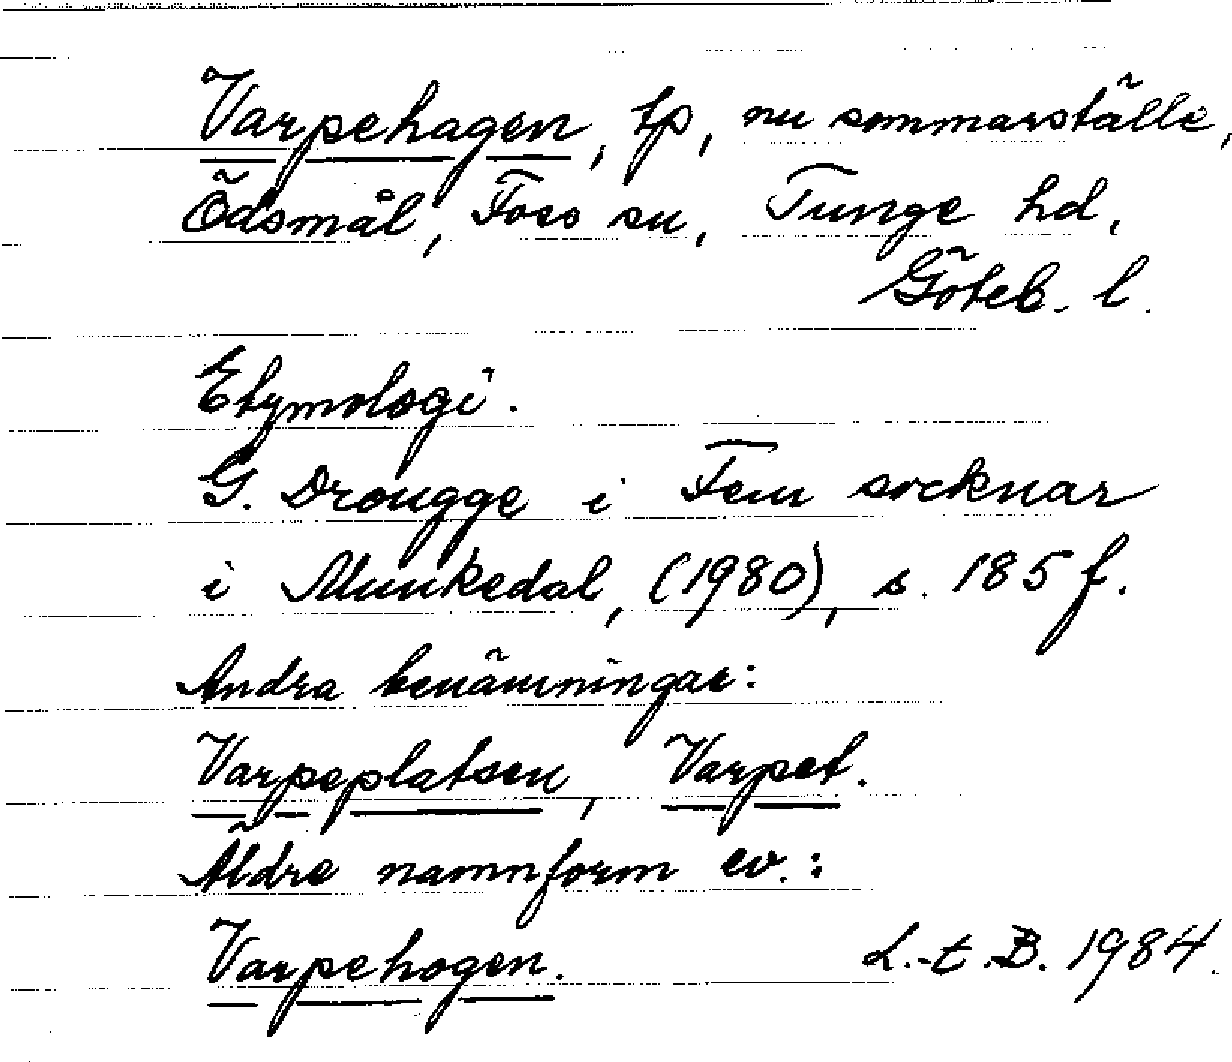 Varpehagen, tp, nu sommarställe,
Ödsmål, Foss sn, Tunge hd,
Göteb. l.
Etymologi.
G. Drougge i Fem socknar
i Munkedal, (1980), s. 185 f.
Andra benämningar:
Varpeplatsen, Varpet.
Äldre namnform ev.:
Varpehogen. L.-t.B. 1984.